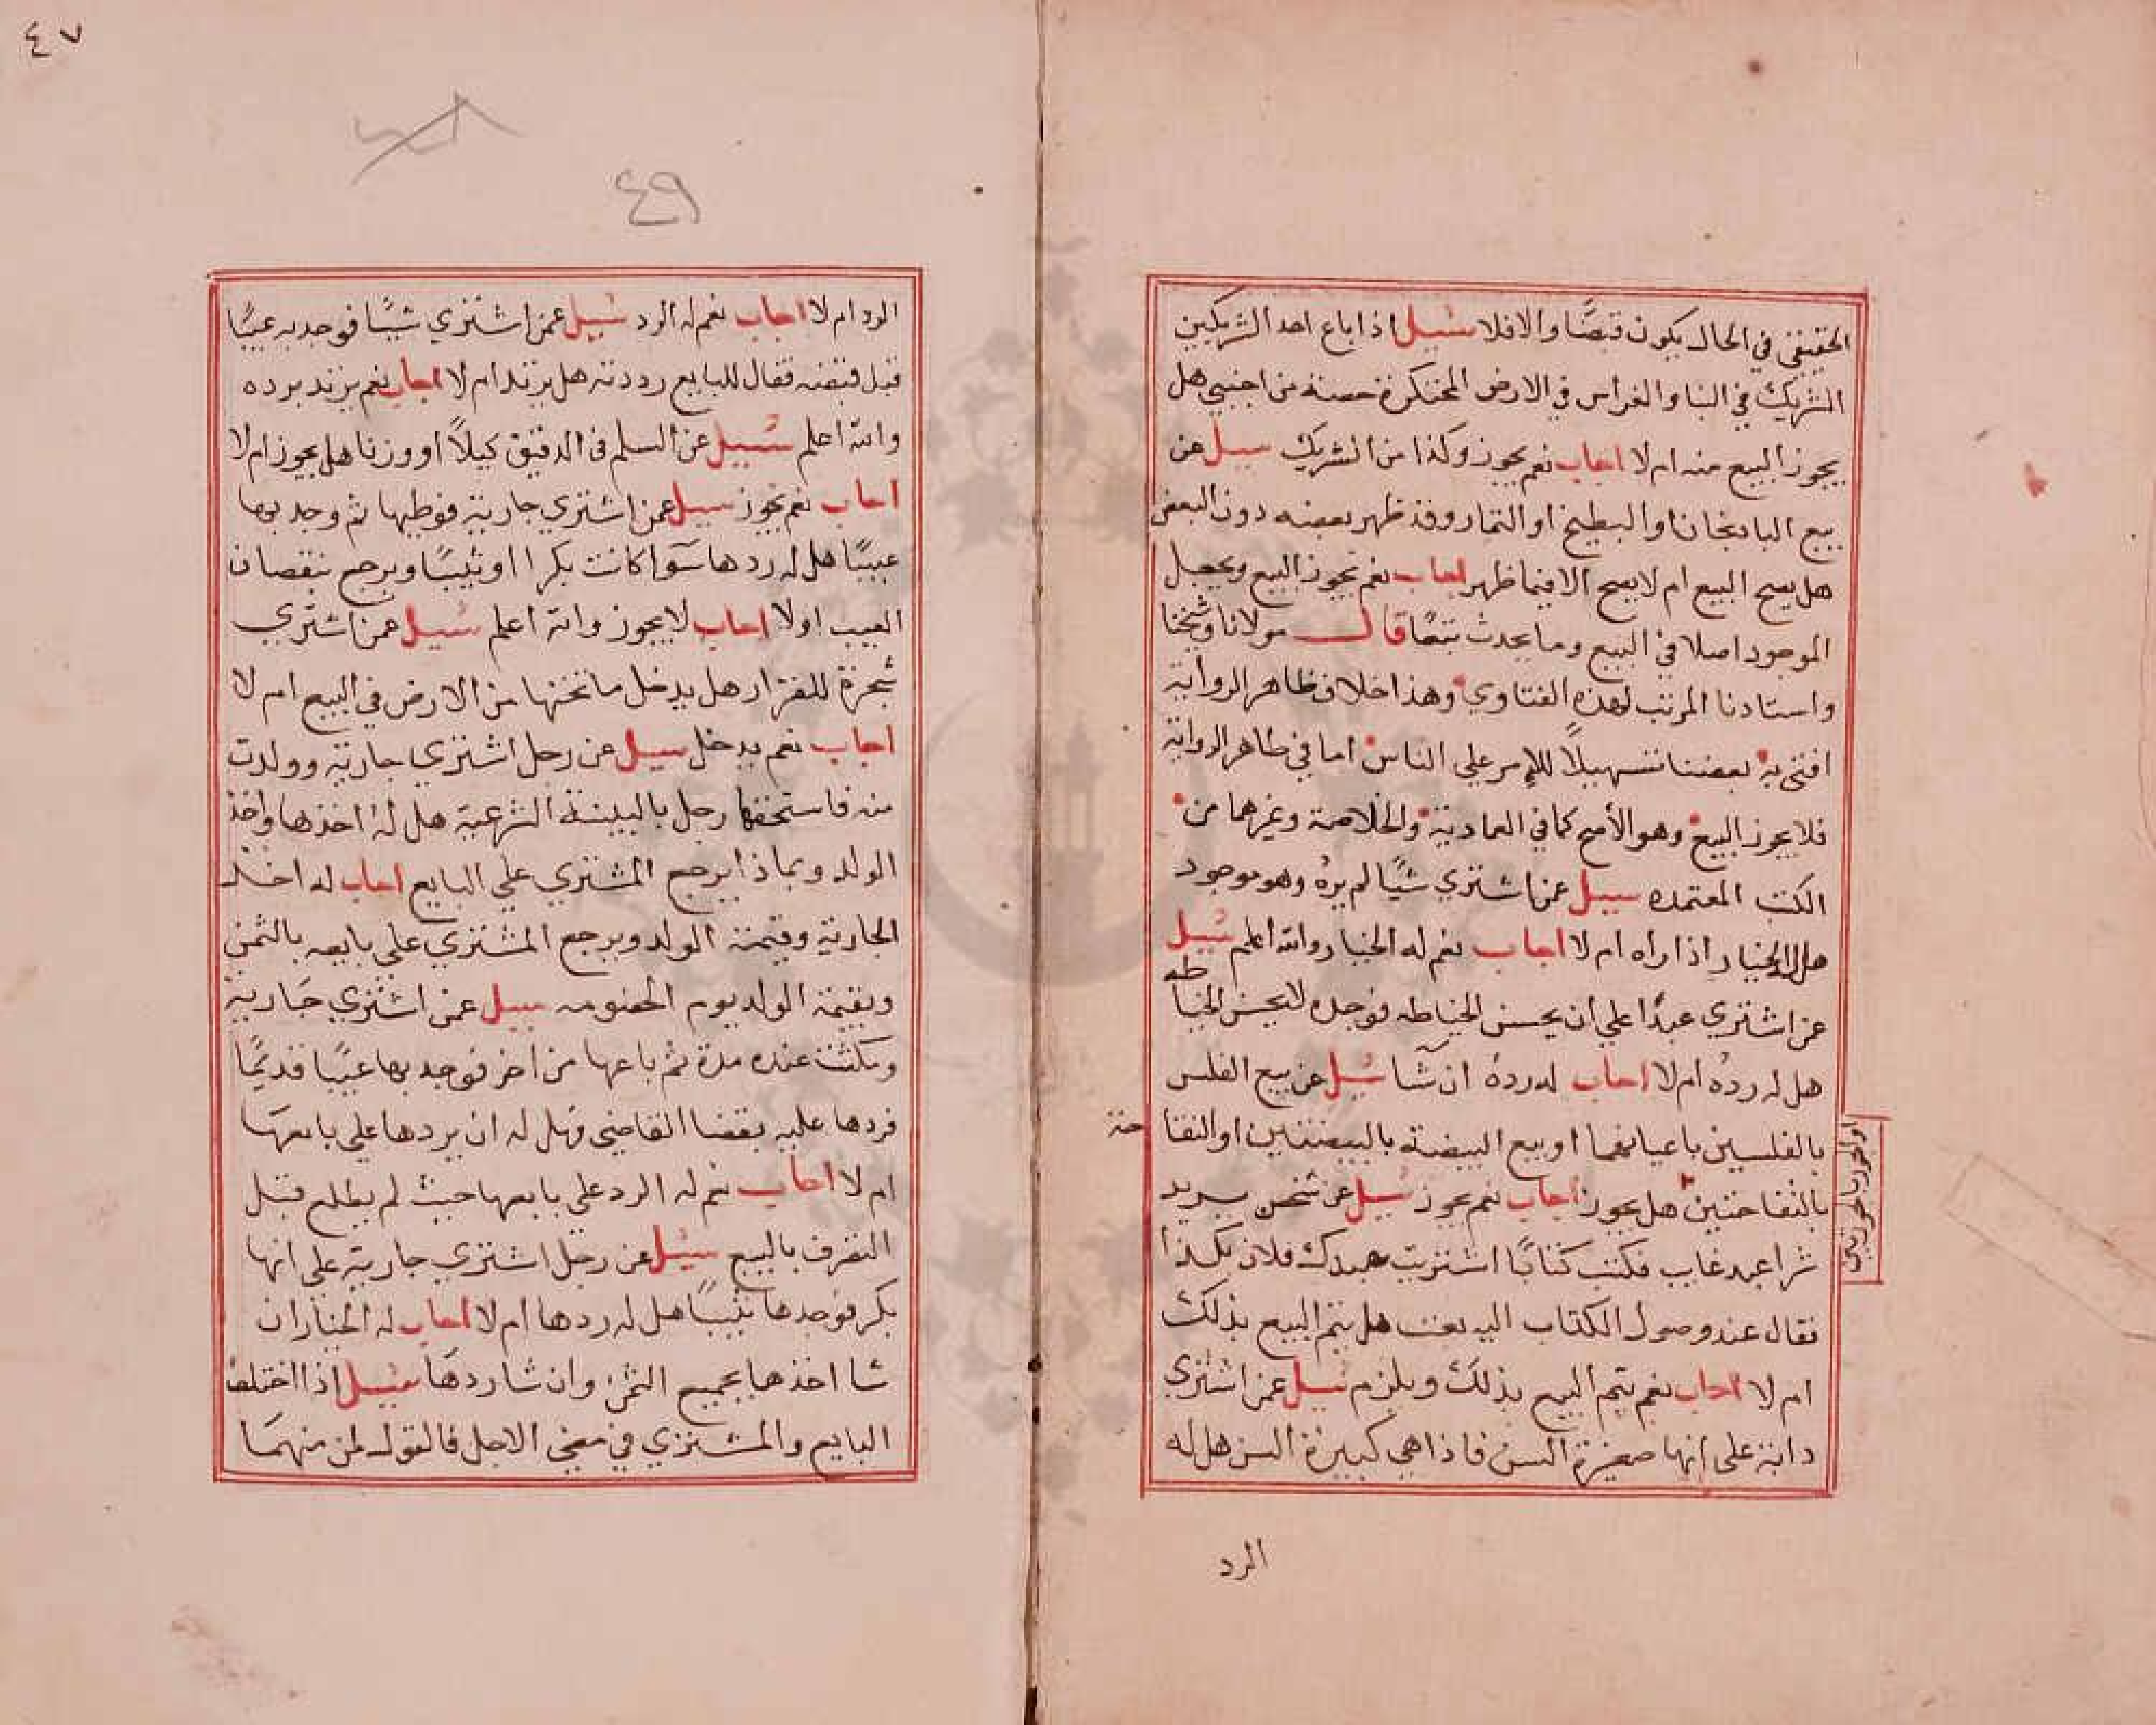 الحقيقي في الحال يكون قبضًا والا فلا سئيل اذا باع احد الشريكين
الشريك في البنا والغراس في الارض المحتكرة حصته من اجنبي هل
يجوز البيع منه ام لا اجاب نعم يجوز وكذا من الشريك سيل عن
بيع البادنجان او البطيخ او الثمار وقد ظهر بعضه دون البعض
هل يصح البيع ام لا يصح الا فيما ظهر اجاب نعم يجوز البيع ويجعل
الموجود اصلا في البيع وما يحدث تبعًا قال مولانا وشيخنا
واستادنا المرتب لهذه الفتاوي وهذا خلاف ظاهر الرواية
افتى به بعضنا تسهيلاً للامر على الناس اما في ظاهر الرواية
فلا يجوز البيع وهو الأصح كما في العمادية والخلاصة وغيرهما من
الكتب المعتمده سيل عمن اشتري شيًا لم يرهُ وهو موجود
هل له الخيار اذا راه ام لا اجاب نعم له الخيار والله اعلم سئيل
عن اشتري عبدًا علي ان يحسن الخياطه فوجده لا يحسن الخياطه
هل له رده ام لا اجاب له ردهُ ان شا سُيل عن بيع الفلس
بالفلسين باعيانهما او بيع البيضة بالبيضتين او التفاحة
بالتفاحتين هل يجوز اجاب نعم يجوز سُيل عن شخص يريد
او الجوزة بالجوزتين
شرا عبد غايب فكتب كتابًا اشتريت عبدك فلان بكذا
فقال عند وصول الكتاب اليه بعت هل يتم البيع بذلك
ام لا اجاب نعم يتم البيع بذلك ويلزم سُيل عمن اشتري
دابة على انها صغيرة السن فاذا هي كبيرة السن هل له
الرد
٤٧
٤٩
الرد ام لا اجاب نعم له الرد سُيل عمن اشتري شيًا فوجد به عيبًا
قبل قبضه فقال للبايع رددته هل يرتد ام لا اجاب نعم يرتد برده
والله اعلم سُيل عن السلم في الدقيق كيلاً او وزنا هل يجوز ام لا
اجاب نعم يجوز سيل عمن اشتري جارية فوطيها ثم وجد بها
عيبًا هل له ردها سوآ كانت بكرا او ثيبًا ويرجع بنقصان
العيب اولا اجاب لا يجوز والله اعلم سُيل عمن اشتري
شجرة للقرار هل يدخل ما تحتها من الارض في البيع ام لا
اجاب نعم يدخل سيل عن رجل اشتري جارية وولدت
منه فاستحقها رجل بالبينة الشرعية هل له اخذها واخذ
الولد وبماذا يرجع المشتري على البايع اجاب له اخذ
الجارية وقيمة الولد ويرجع المشتري على بايعه بالثمن
وبقيمة الولد يوم الخصومه سيل عمن اشتري جَارية
ومكثت عنده مدة ثم باعها من اخر فوجد بها عيبًا قديمًا
فردها عليه بقضا القاضي فهل له ان يردها على بايعهَا
ام لا اجاب نعم له الرد على بايعها حيث لم يطلع قبل
التصرف بالبيع سُيل عن رجل اشتري جارية على انها
بكر فوجدها ثيبًا هل له ردها ام لا اجاب له الخيار ان
شا اخذها بجميع الثمن وان شا ردهَا سُيل اذا اختلف
البايع والمشتري في مضي الاجل فالقول لمن منهمَا